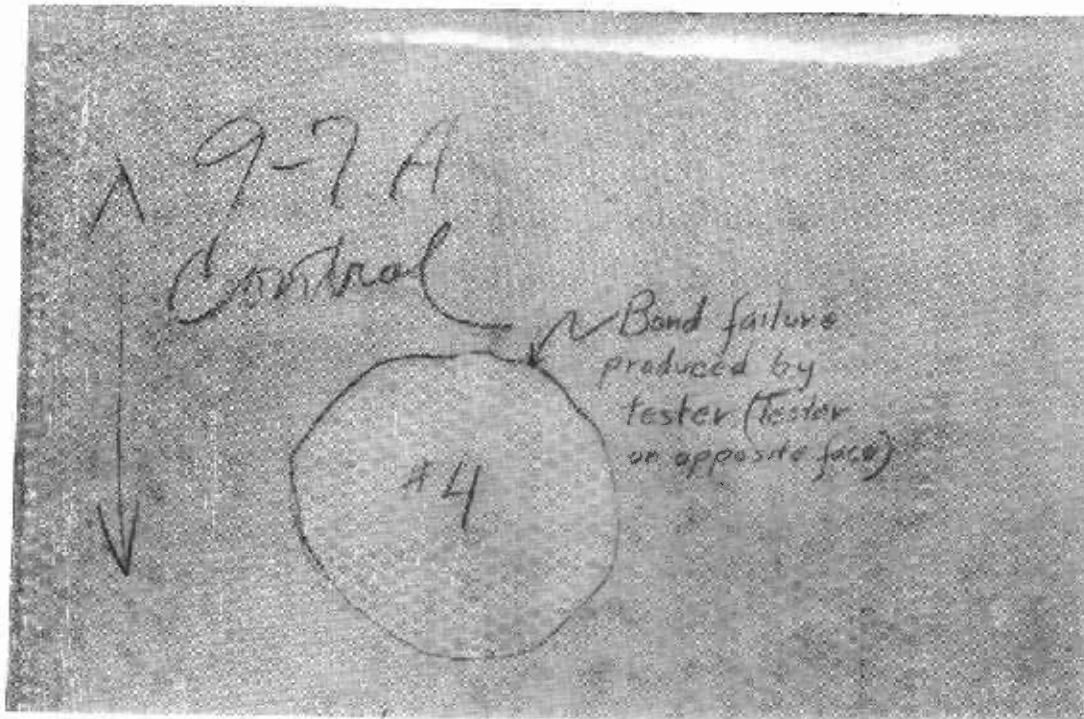 9-7 A
Control
Bond failure
produced by
tester (Tester
on opposite face)
#4